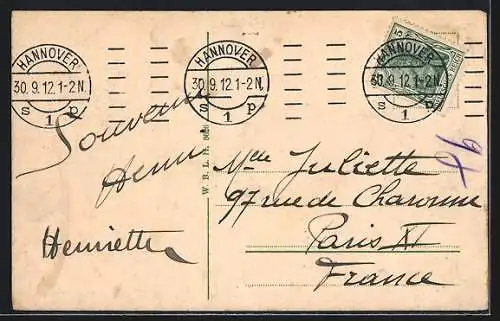 HANNOVER
30.9.12.1-2N.
S 1 p
HANNOVER
30.9.12.1-2N.
S 1 p
HANNOVER
30.9.12.1-2N.
S 1 p
Souvenir
Henri
Henriette
W. B. L. H.
Mlle Juliette
97 rue de Charonne
Paris XI
France